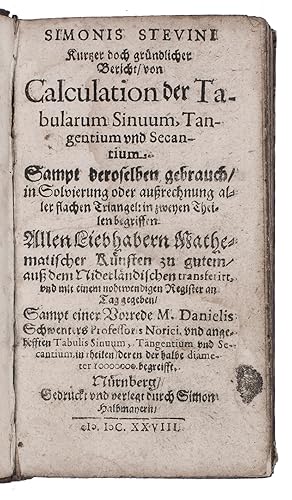 SIMONIS STEVINI
Kurtzer doch gründlicher
Bericht/ von
Calculation der Ta-
bularum Sinuum, Tan-
gentium vnd Secan-
tium.
Sampt deroselben gebrauch/
in Solvierung oder außrechnung al-
ler flachen Triangel: in zweyen Thei-
len begriffen.
Allen Liebhabern Mathe-
matischer Künsten zu gutem/
auß dem Niderländischen transferirt,
vnd mit einem nohtwendigen Register an
Tag gegeben/
Sampt einer Vorrede M. Danielis
Schwenters Professoris Norici, vnd ange-
hefften Tabulis Sinuum, Tangentium vnd Se-
cantium, in theilen/ deren der halbe diame-
ter 10000000. begreifft.
Nürnberg/
Gedruckt vnd verlegt durch Simon
Halbmayern/
cIↄ. IↄC. XXVIII.